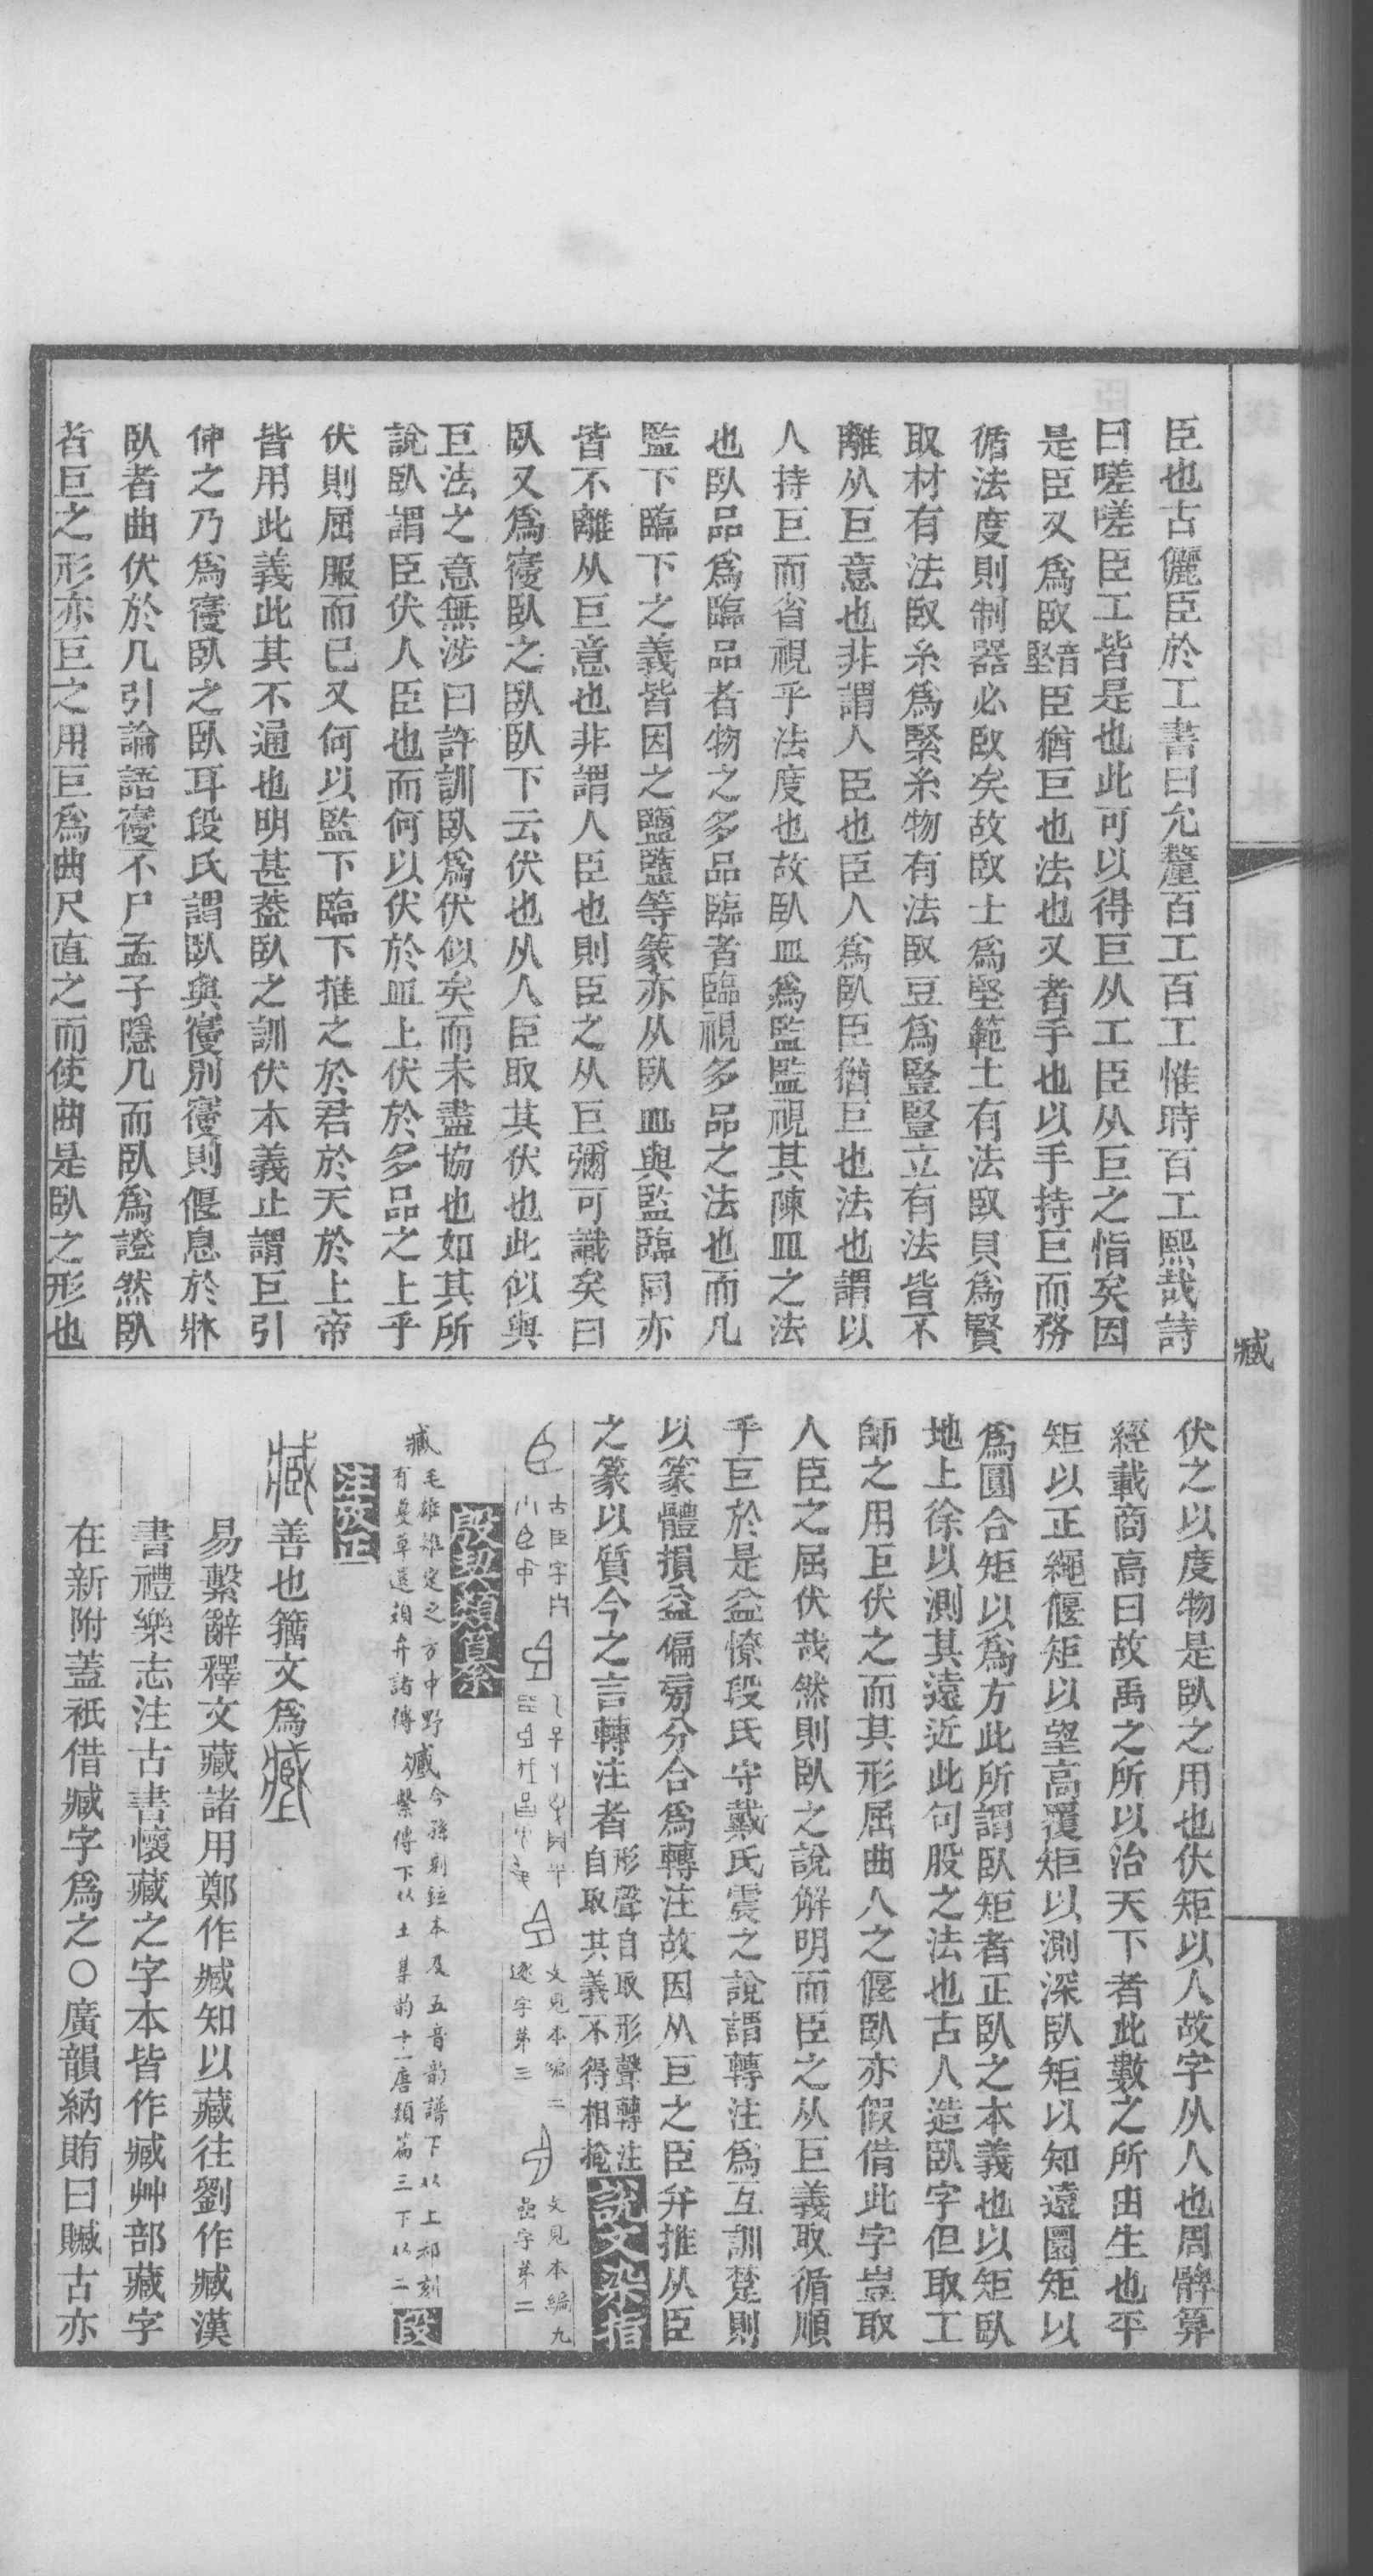 臣也古儷臣於工書曰允釐百工百工惟時百工熙哉詩
曰嗟嗟臣工皆是也此可以得巨从工臣从巨之恉矣因
是臣又爲臤臤音堅臣猶巨也法也又者手也以手持巨而務
循法度則制器必臤矣故臤土爲堅範土有法臤貝爲賢
取材有法臤糸爲緊糸物有法臤豆爲豎豎立有法皆不
離从巨意也非謂人臣也臣人爲臥臣猶巨也法也謂以
人持巨而省視乎法度也故臥皿爲監監視其陳皿之法
也臥品爲臨品者物之多品臨者臨視多品之法也而凡
監下臨下之義皆因之鹽鹽等篆亦从臥皿與監臨同亦
皆不離从巨意也非謂人臣也則臣之从巨彌可識矣曰
臥又爲寑臥之臥臥下云伏也从人臣取其伏也此似與
巨法之意無涉曰許訓臥爲伏似矣而未盡協也如其所
說臥謂臣伏人臣也而何以伏於皿上伏於多品之上乎
伏則屈服而已又何以監下臨下推之於君於天於上帝
皆用此義此其不通也明甚葢臥之訓伏本義止謂巨引
伸之乃爲寑臥之臥耳段氏謂臥與寑別寑則偃息於牀
臥者曲伏於几引論語寑不尸孟子隱几而臥爲證然臥
者巨之形亦巨之用巨爲曲尺直之而使曲是臥之形也
臧
伏之以度物是臥之用也伏矩以人故字从人也周髀算
經載商高曰故禹之所以治天下者此數之所由生也平
矩以正繩偃矩以望高覆矩以測深臥矩以知遠圜矩以
爲圓合矩以爲方此所謂臥矩者正臥之本義也以矩臥
地上徐以測其遠近此句股之法也古人造臥字但取工
師之用巨伏之而其形屈曲人之偃臥亦假借此字豈取
人臣之屈伏哉然則臥之說解明而臣之从巨義取循順
乎巨於是益憭段氏守戴氏震之說謂轉注爲互訓楚則
以篆體損益偏㫄分合爲轉注故因从巨之臣幷推从臣
之篆以質今之言轉注者形聲自取形聲轉注自取其義不得相掩說文染指
古臣字
文見本編二遂字第三
文見本編九嵒字第二
殷契類纂
臧毛雄雉定之方中野有蔓草選頍弁諸傳臧今孫別鉉本及五音韵譜下以上祁刻繫傳下以土集韵十一唐類篇三下以二段
注改正
臧善也籀文爲
易繫辭釋文藏諸用鄭作臧知以藏往劉作臧漢
書禮樂志注古書懷藏之字本皆作臧艸部藏字
在新附蓋祇借臧字爲之○廣韻納賄曰贓古亦